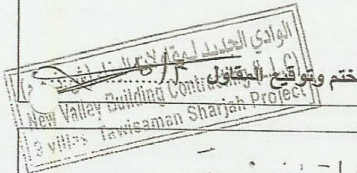 ختم وتوقيع المقاول
الوادي الجديد لمقاولات
New Valley Building Contracting
3 villas Tawisaman Sharjah Project